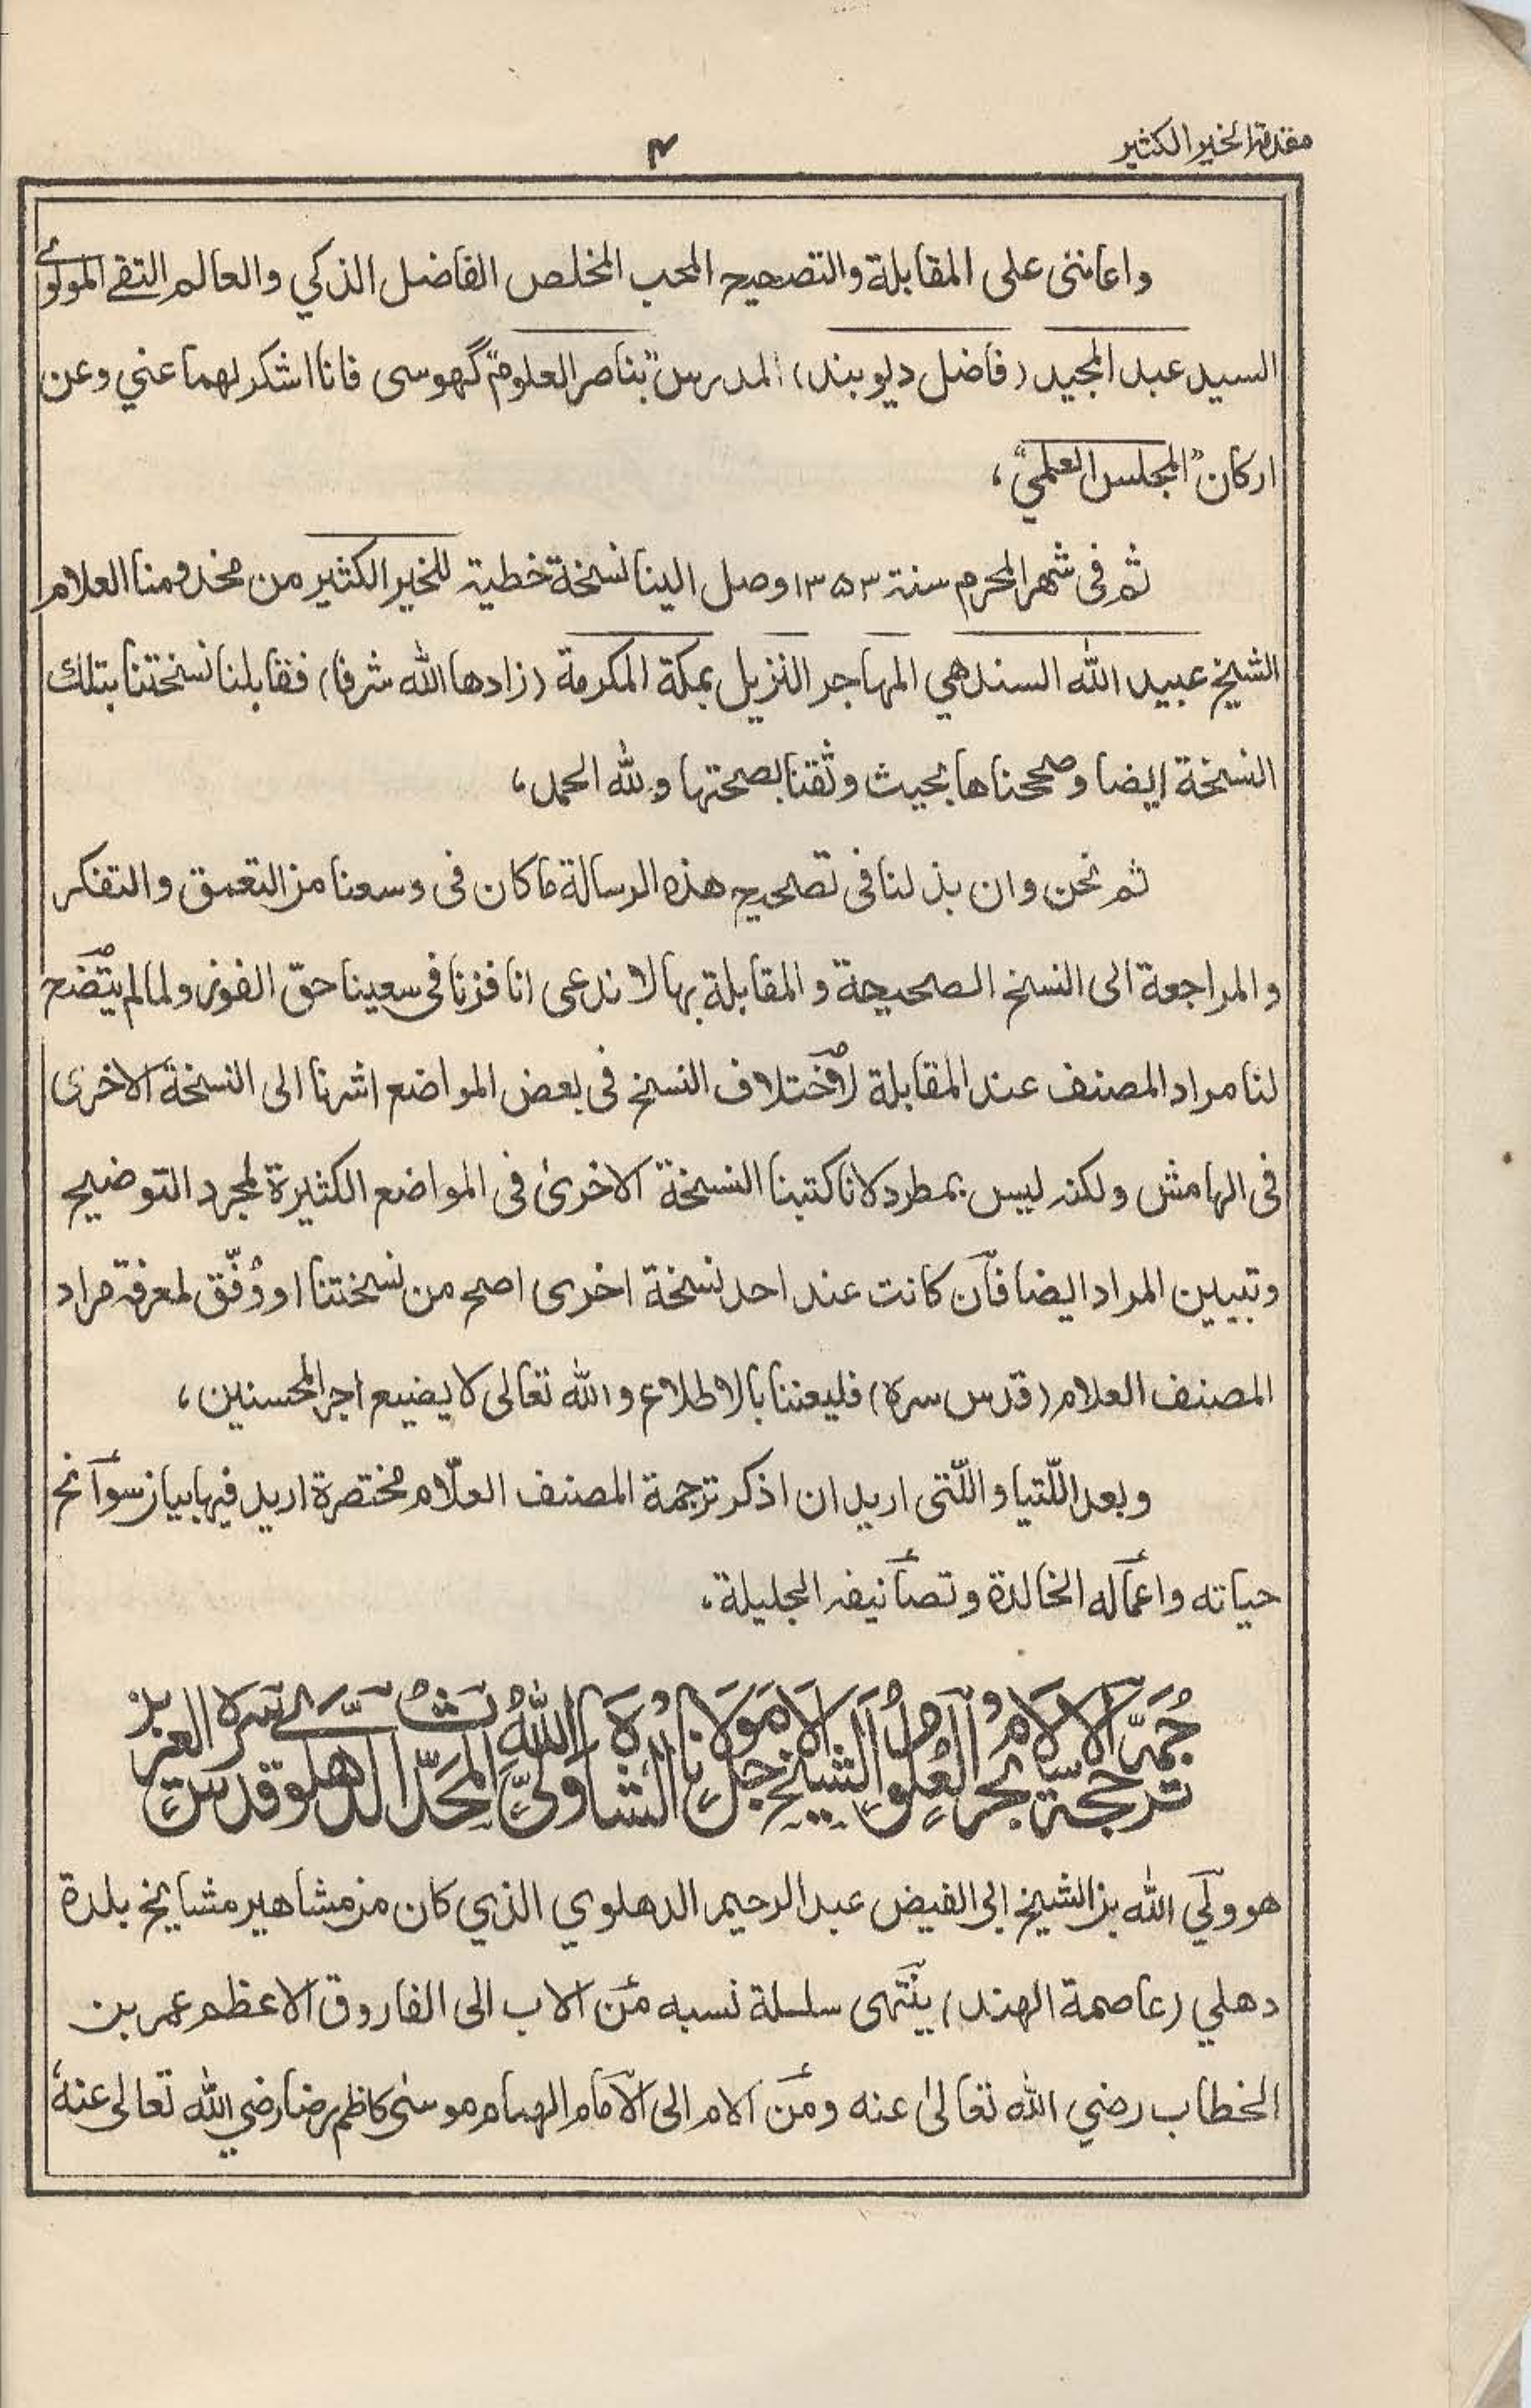 مقدمة الخير الكثير
۴
واعاننى على المقابلة والتصحيح المحب المخلص الفاضل الذكي والعالم التقي المولوي
السيد عبد المجيد (فاضل ديوبند) المدرس "بناصر العلوم" گهوسى فانا اشكر لهما عني وعن
اركان "المجلس العلمي"،
ثم فى شهر المحرم سنة ۱۳۵۳ وصل الينا نسخة خطية للخير الكثير من مخدومنا العلام
الشيخ عبيد الله السندهي المهاجر النزيل بمكة المكرمة (زادها الله شرفا) فقابلنا نسختنا بتلك
النسخة ايضا وصححناها بحيث وثقنا بصحتها ولله الحمد،
ثم نحن وان بذلنا فى تصحيح هذه الرسالة ما كان فى وسعنا من التعمق والتفكر
والمراجعة الى النسخ الصحيحة والمقابلة بها لا ندعى انا فزنا فى سعينا حقّ الفوز ولما لم يتضح
لنا مراد المصنف عند المقابلة لاختلاف النسخ فى بعض المواضع اشرنا الى النسخة الاخرى
فى الهامش ولكنه ليس بمطرد لانا كتبنا النسخة الاخرىٰ فى المواضع الكثيرة لمجرد التوضيح
وتبيين المراد ايضا فان كانت عند احد نسخة اخرى اصح من نسختنا او وُفّق لمعرفة مراد
المصنف العلام (قدس سره) فليعننا بالاطلاع والله تعالى لا يضيع اجر المحسنين،
وبعد اللّتيا واللّتى اريد ان اذكر ترجمة المصنف العلّام مختصرة اريد فيها بيان سوانح
حياته واعماله الخالدة وتصانيفه الجليلة،
ترجمة حجة الاسلام بحر العلوم الشيخ الاجل مولانا الشاه ولي الله المحدث الدهلوي قدس سره العزيز
هو ولي الله بن الشيخ ابى الفيض عبد الرحيم الدهلوي الذي كان من مشاهير مشايخ بلدة
دهلي (عاصمة الهند) ينتهى سلسلة نسبه من الاب الى الفاروق الاعظم عمر بن
الخطاب رضي الله تعالىٰ عنه ومن الام الى الامام الهمام موسىٰ كاظم رضا رضي الله تعالى عنه